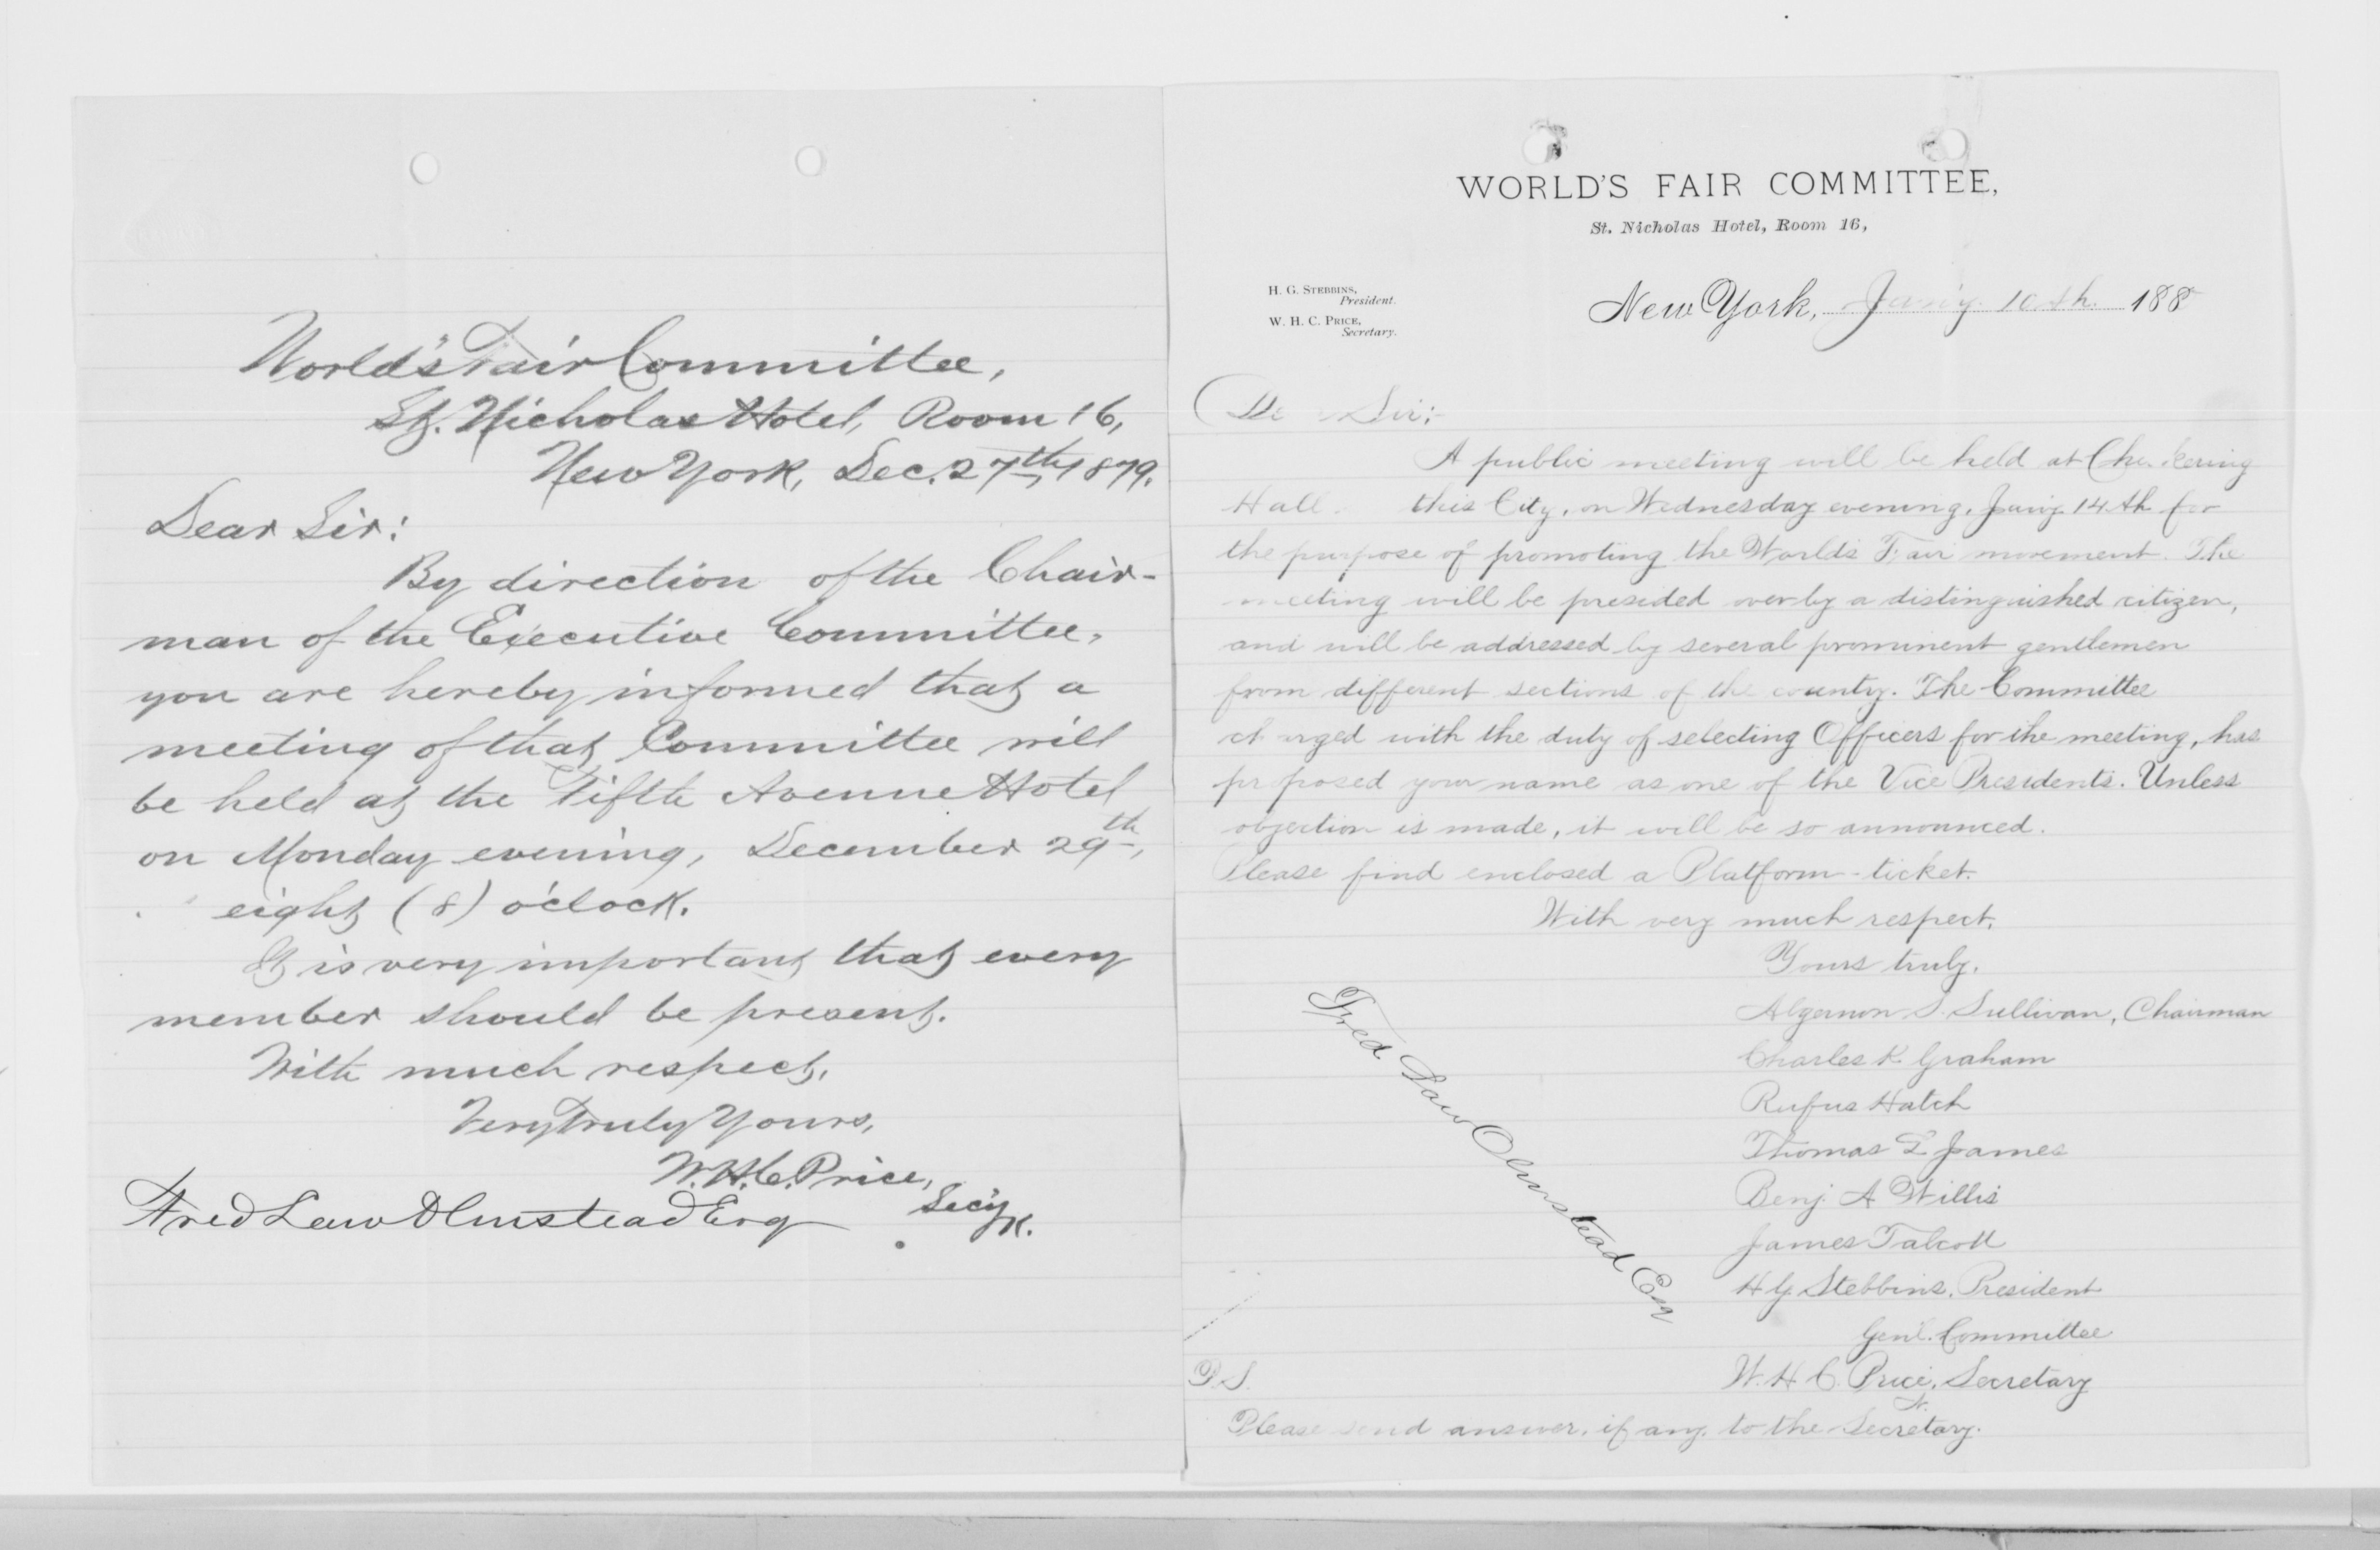 World's Fair Committee,
St. Nicholas Hotel, Room 16,
New York, Dec. 27th, 1879.
Dear Sir:
By direction of the Chair-
man of the Executive Committee,
you are hereby informed that a
meeting of that Committee will
be held at the Fifth Avenue Hotel
on Monday evening, December 29th,
eight (8) o'clock.
It is very important that every
member should be present.
With much respect,
Very Truly Yours,
W. H. C. Price,
Sec'y
K.
Fred Law Olmstead Esq
WORLD'S FAIR COMMITTEE,
St. Nicholas Hotel, Room 16,
H. G. STEBBINS,
President.
W. H. C. PRICE,
Secretary.
New York, Jan'y. 10th. 188
Sir:-
A public meeting will be held at Chickering
Hall. this City, on Wednesday evening, Jan'y. 14th for
the purpose of promoting the World's Fair movement. The
meeting will be presided over by a distinguished citizen,
and will be addressed by several prominent gentlemen
from different sections of the country. The Committee
charged with the duty of selecting Officers for the meeting, has
proposed your name as one of the Vice Presidents. Unless
objection is made, it will be so announced.
Please find enclosed a Platform-ticket.
With very much respect,
Yours truly,
Algernon S. Sullivan, Chairman
Charles K. Graham
Rufus Hatch
Thomas L James
Benj. A Willis
James Talcott
H G. Stebbins, President
Gen'l. Committee
W. H. C. Price, Secretary
Fred Law Olmstead Esq
P.S.
Please send answer, if any, to the Secretary.